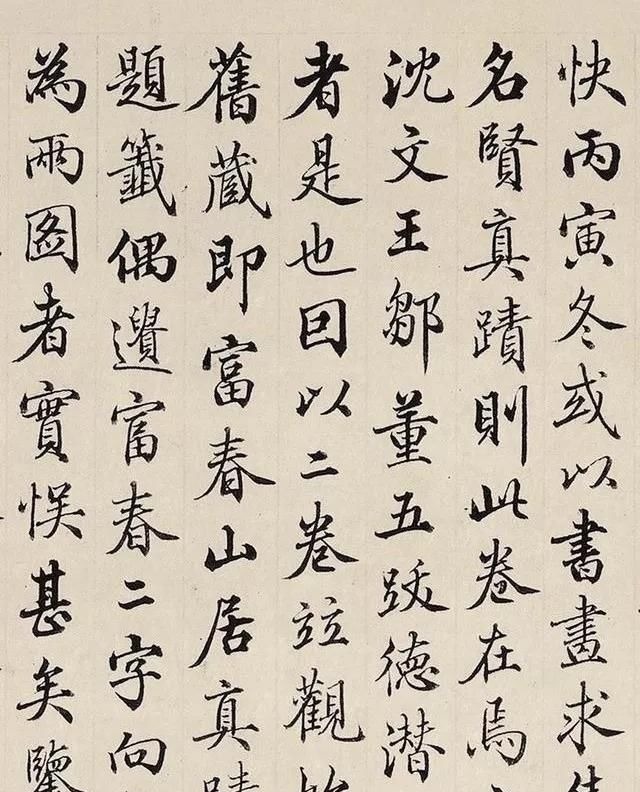 快丙寅冬或以書畫求
名賢真蹟則此卷在焉
沈文王鄒董五跋德潛
者是也因以二卷竝觀
舊蔵即富春山居真
題籤偶遺富春二字向
為兩圖者實悮甚矣鑒